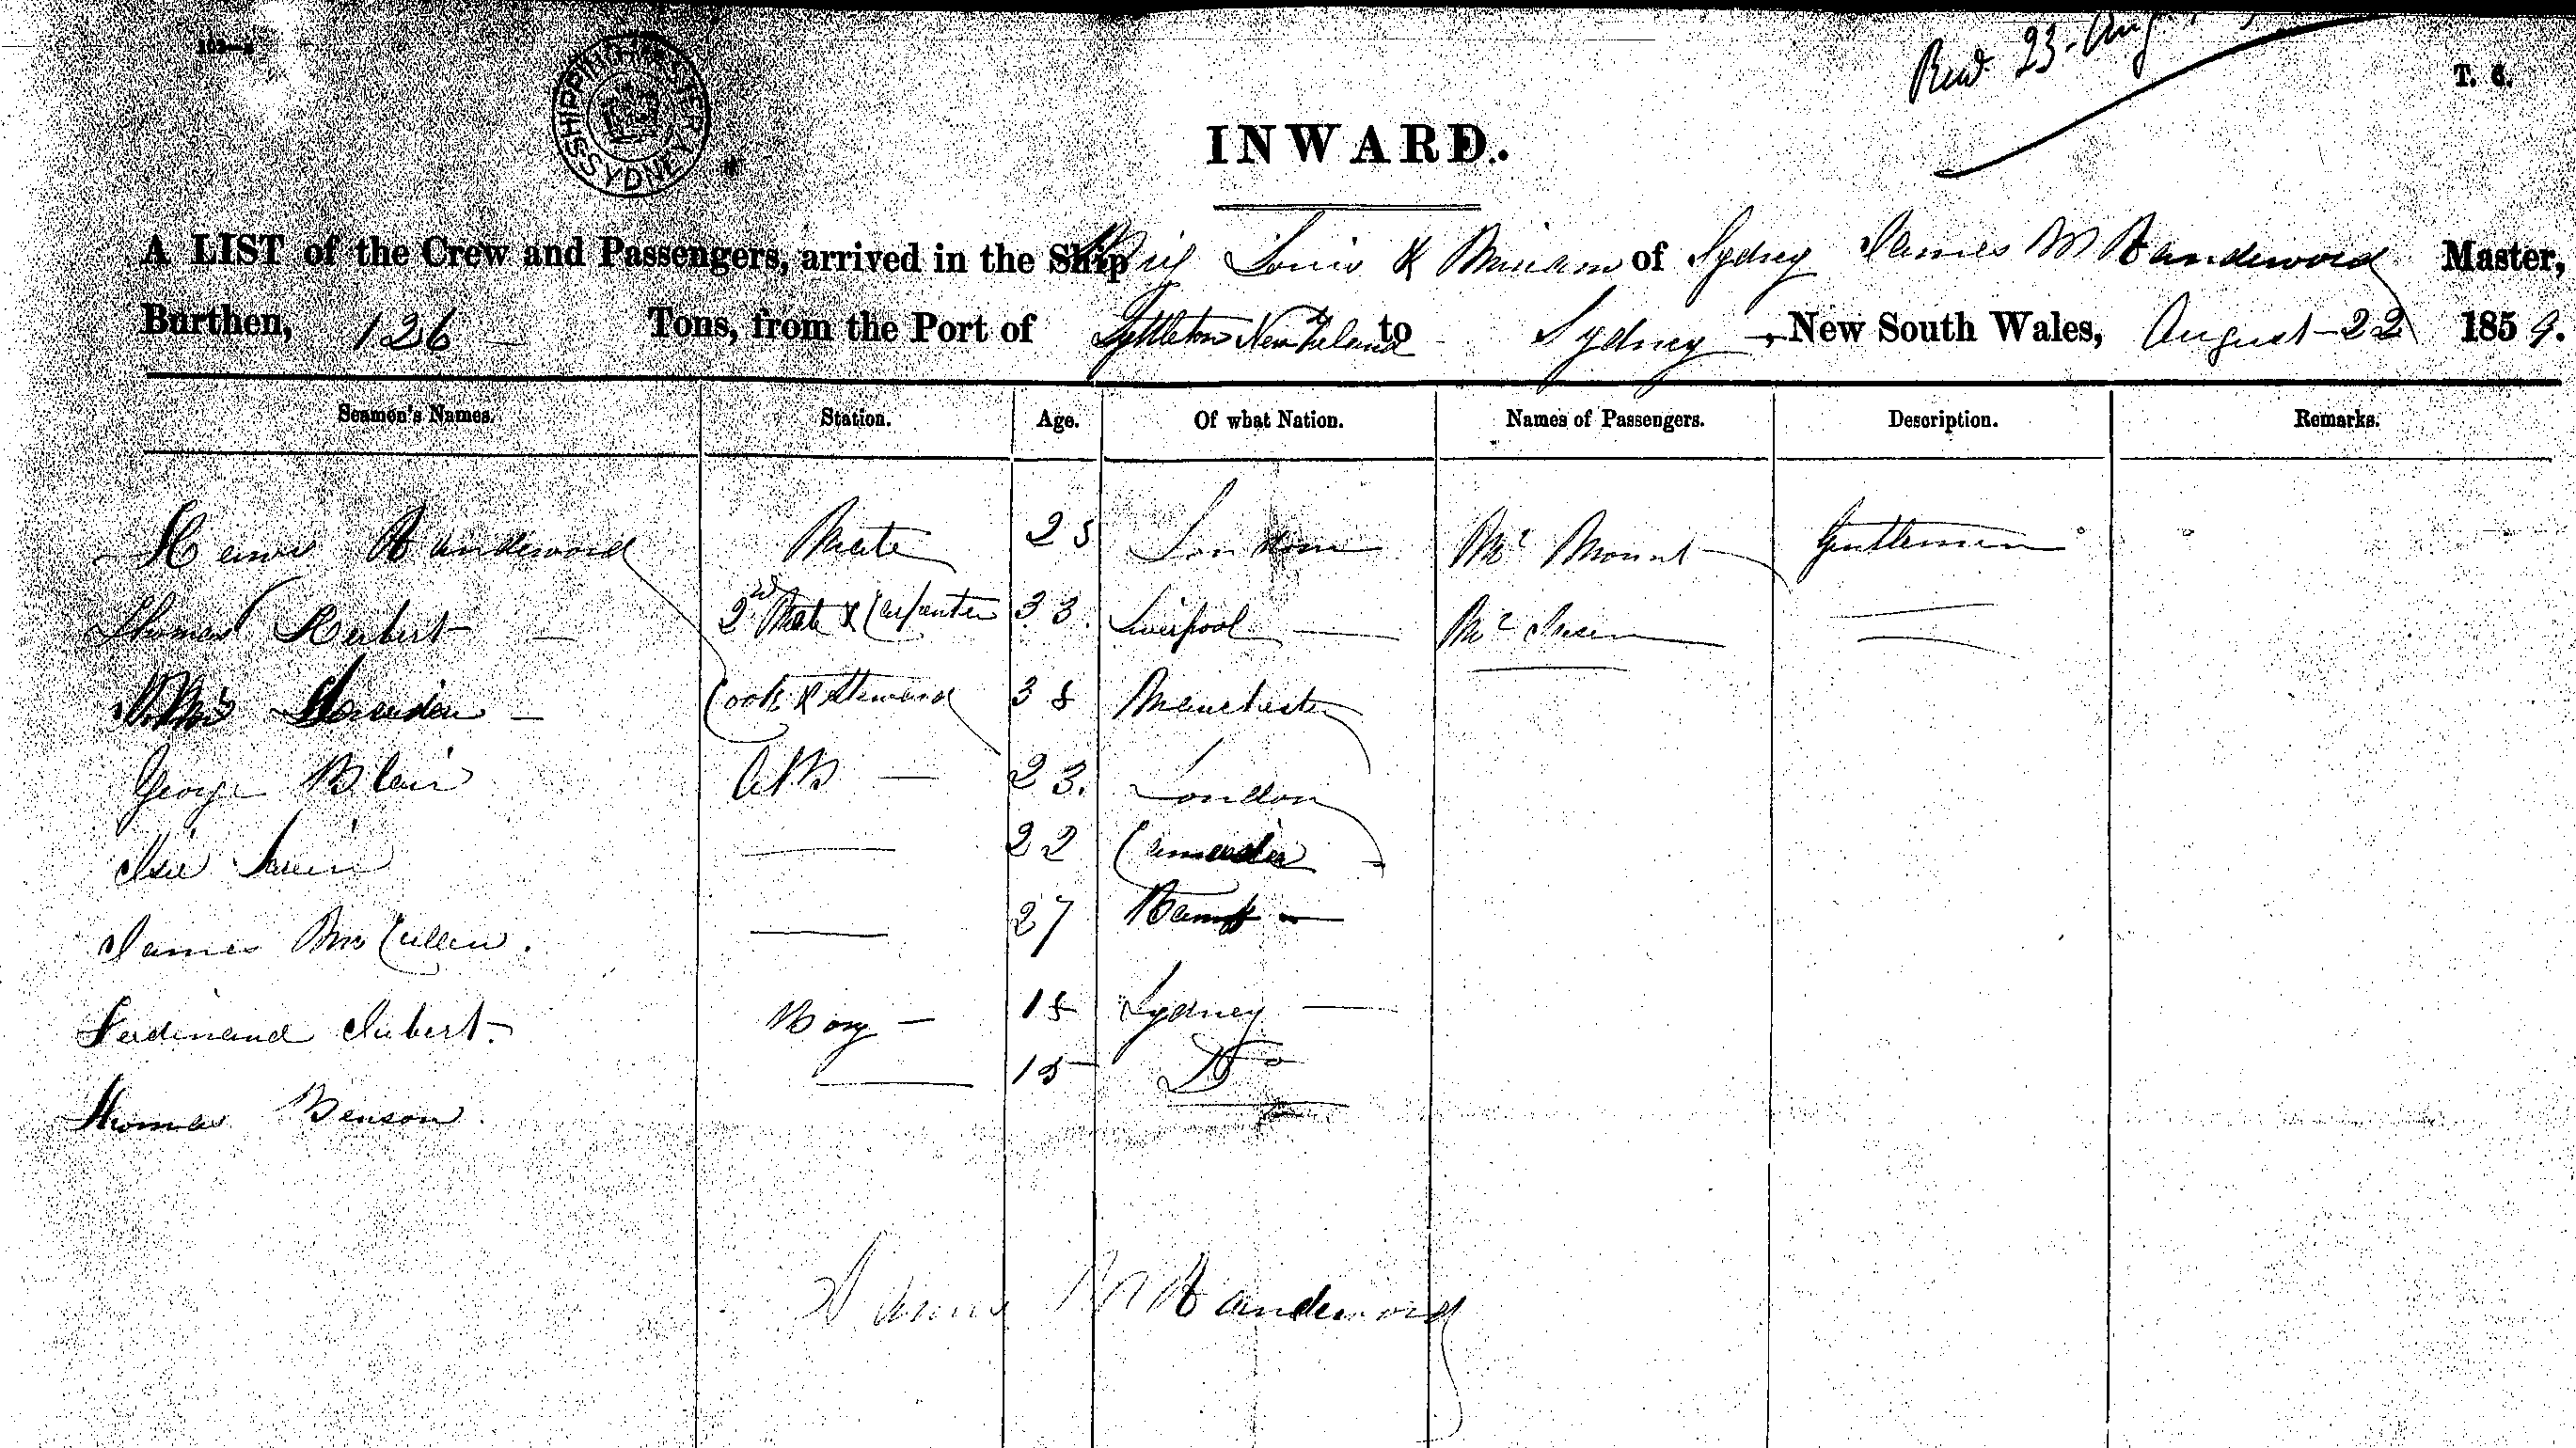 SHIPPING MASTER SYDNEY
Recd 23 Aug
T. C.
INWARD.
A LIST of the Crew and Passengers, arrived in the Ship Brig Louis & Miriam of Sydney James M Vanderword Master,
Burthen, 126 Tons, from the Port of Lyttleton New Zeland to Sydney, New South Wales, August 22 1859.
Seamen's Names. Station. Age. Of what Nation. Names of Passengers. Description. Remarks.
Mate 25 London Mr Mount Gentlemen
Thomas Herbert 2nd Mate & Carpenter 33. Liverpool Mr
Cook & Steward 38 Manchester
George Blair AB 23. London
22
James McCullen. 27 Banff
Ferdinand Boy 18 Sydney
Thomas Benson 15 Do
James M Vanderword